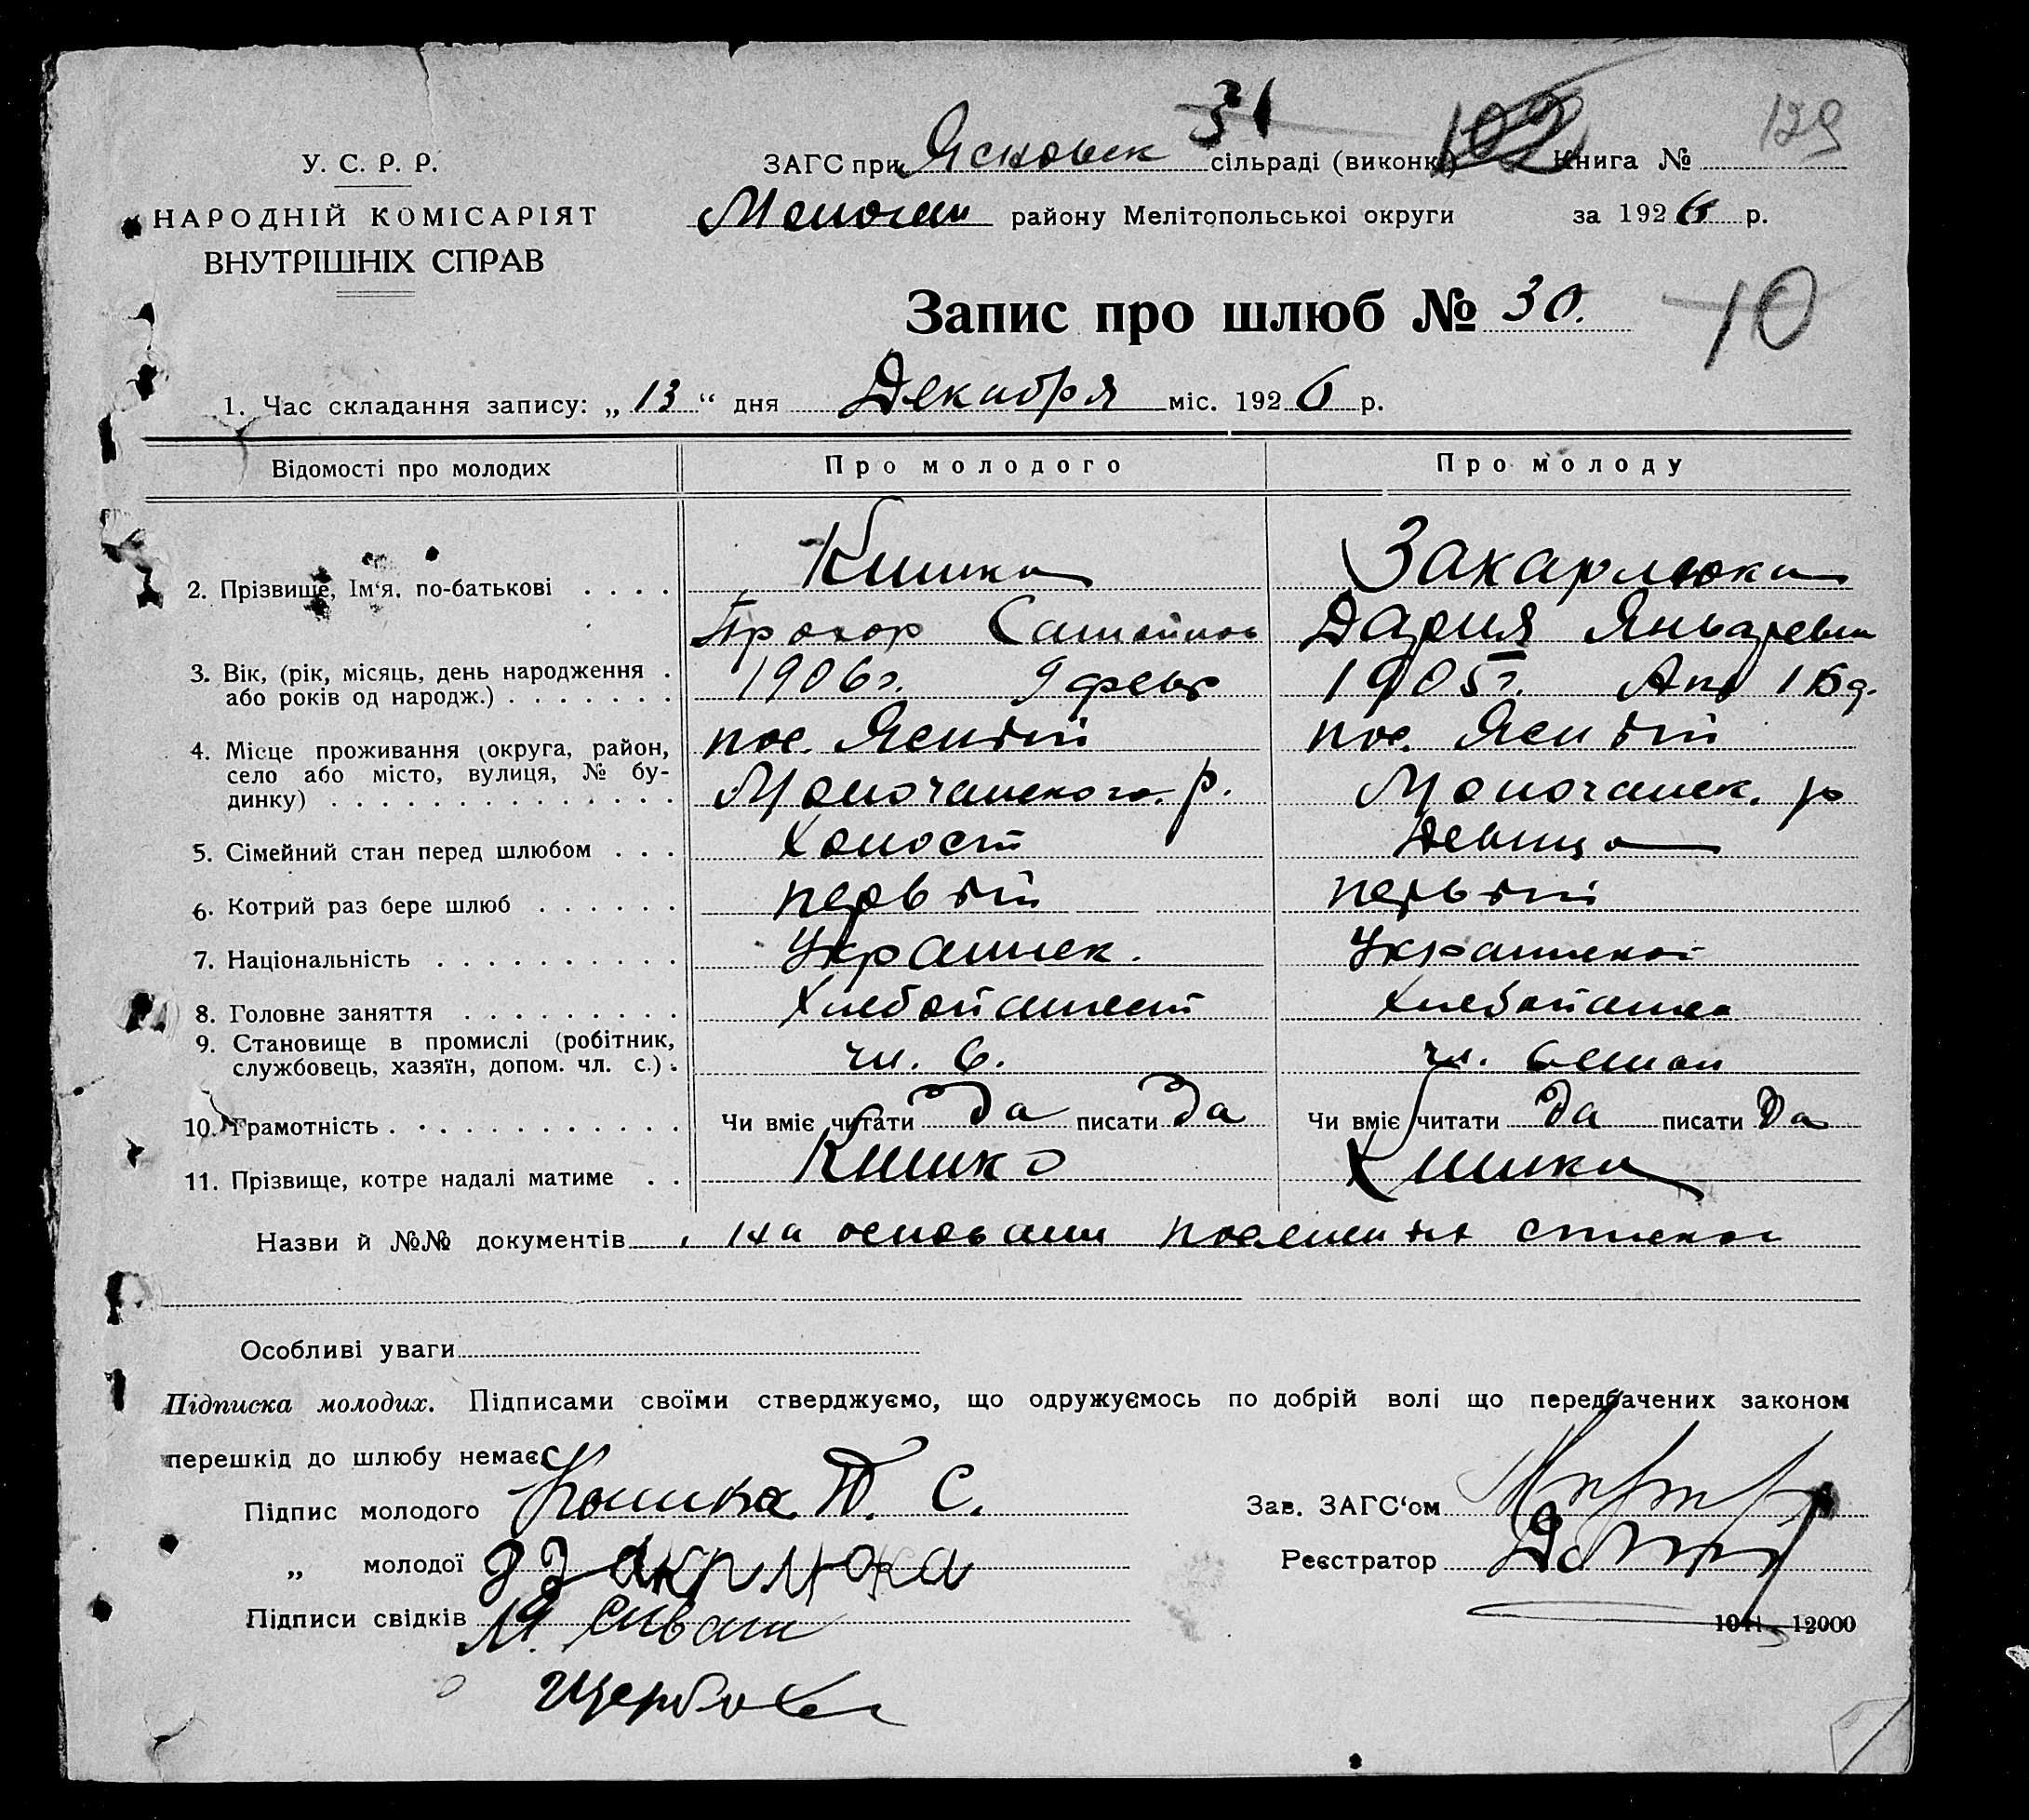 31
У. С. Р. Р.
ЗАГС при Ясновск сільраді (виконк.) 102 Книга № 129
НАРОДНІЙ КОМІСАРІЯТ
ВНУТРІШНІХ СПРАВ
району Мелітопольської округи за 1926 р.
Запис про шлюб № 30.
10
1. Час складання запису: „ 13 “ дня Декабря міс. 1926 р.
Відомості про молодих Про молодого Про молоду
2. Прізвище, Ім‘я, по-батькові . . . . Кишка Закарлюка
Прохор Дария Январевна
3. Вік, (рік, місяць, день народження . 1906г. 9 февр 1905г. Апр 15д.
або років од народж.) . . . . . . .
4. Місце проживання (округа, район, пос. Ясный пос. Ясный
село або місто, вулиця, № бу-
динку) . . . . . . . . . . . . . . Молочанского. р. Молочанск. р
5. Сімейний стан перед шлюбом . . . Холост Девица
6. Котрий раз бере шлюб . . . . . . первый первый
7. Національність . . . . . . . . . . Украинск. Украинска
8. Головне заняття . . . . . . . . . Хлебопашест Хлебопашес
9. Становище в промислі (робітник,
службовець, хазяїн, допом. чл. с.) . чл. с. чл. семьи
10. Грамотність . . . . . . . . . . . . Чи вміє читати Да писати Да Чи вміє читати Да писати Да
11. Прізвище, котре надалі матиме . . Кишко Кишка
Назви й №№ документів на основании списков
Особливі уваги
Підписка молодих. Підписами своїми стверджуємо, що одружуємось по добрій волі що передбачених законом
перешкід до шлюбу немає
Підпис молодого Кошика П. С. Зав. ЗАГС‘ом
„ молодої Закрлюка Реєстратор
Підписи свідків М. Сиваш 12000
Щербак